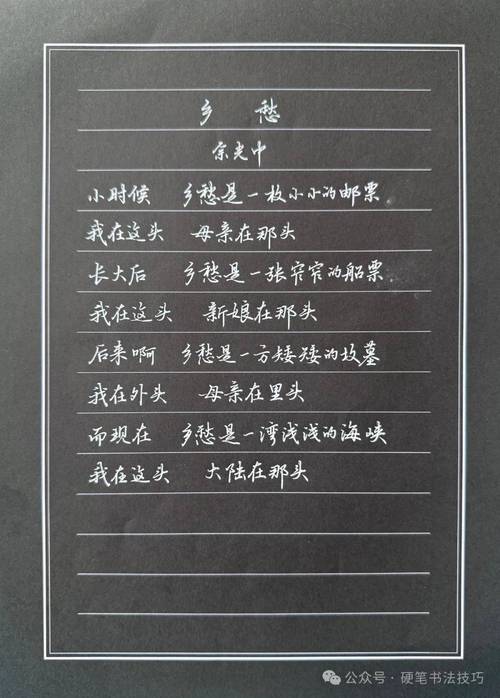 乡 愁
余光中
小时候 乡愁是一枚小小的邮票
我在这头 母亲在那头
长大后 乡愁是一张窄窄的船票
我在这头 新娘在那头
后来啊 乡愁是一方矮矮的坟墓
我在外头 母亲在里头
而现在 乡愁是一湾浅浅的海峡
我在这头 大陆在那头
公众号·硬笔书法技巧